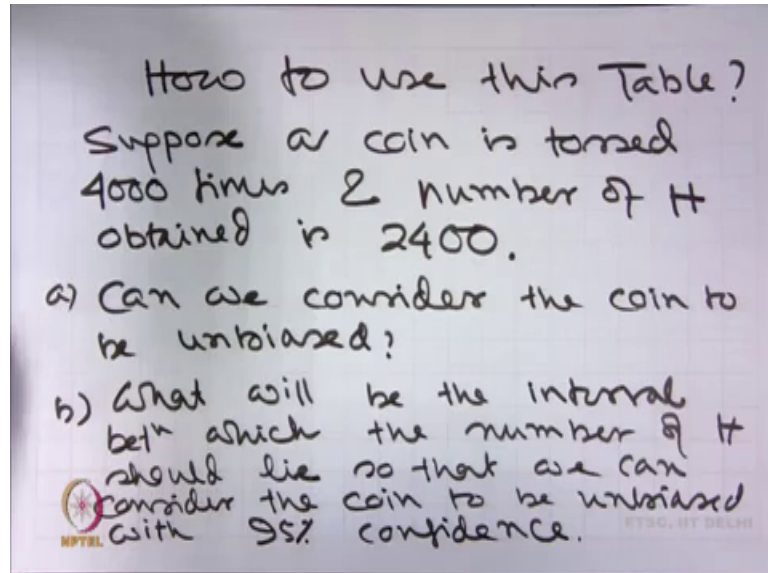 How to use this Table?
Suppose a coin is tossed
4000 times & number of H
obtained is 2400.
a) Can we consider the coin to
be unbiased?
b) What will be the interval
betⁿ which the number of H
should lie so that we can
consider the coin to be unbiased
with 95% confidence.
NPTEL
ETSC, IIT DELHI